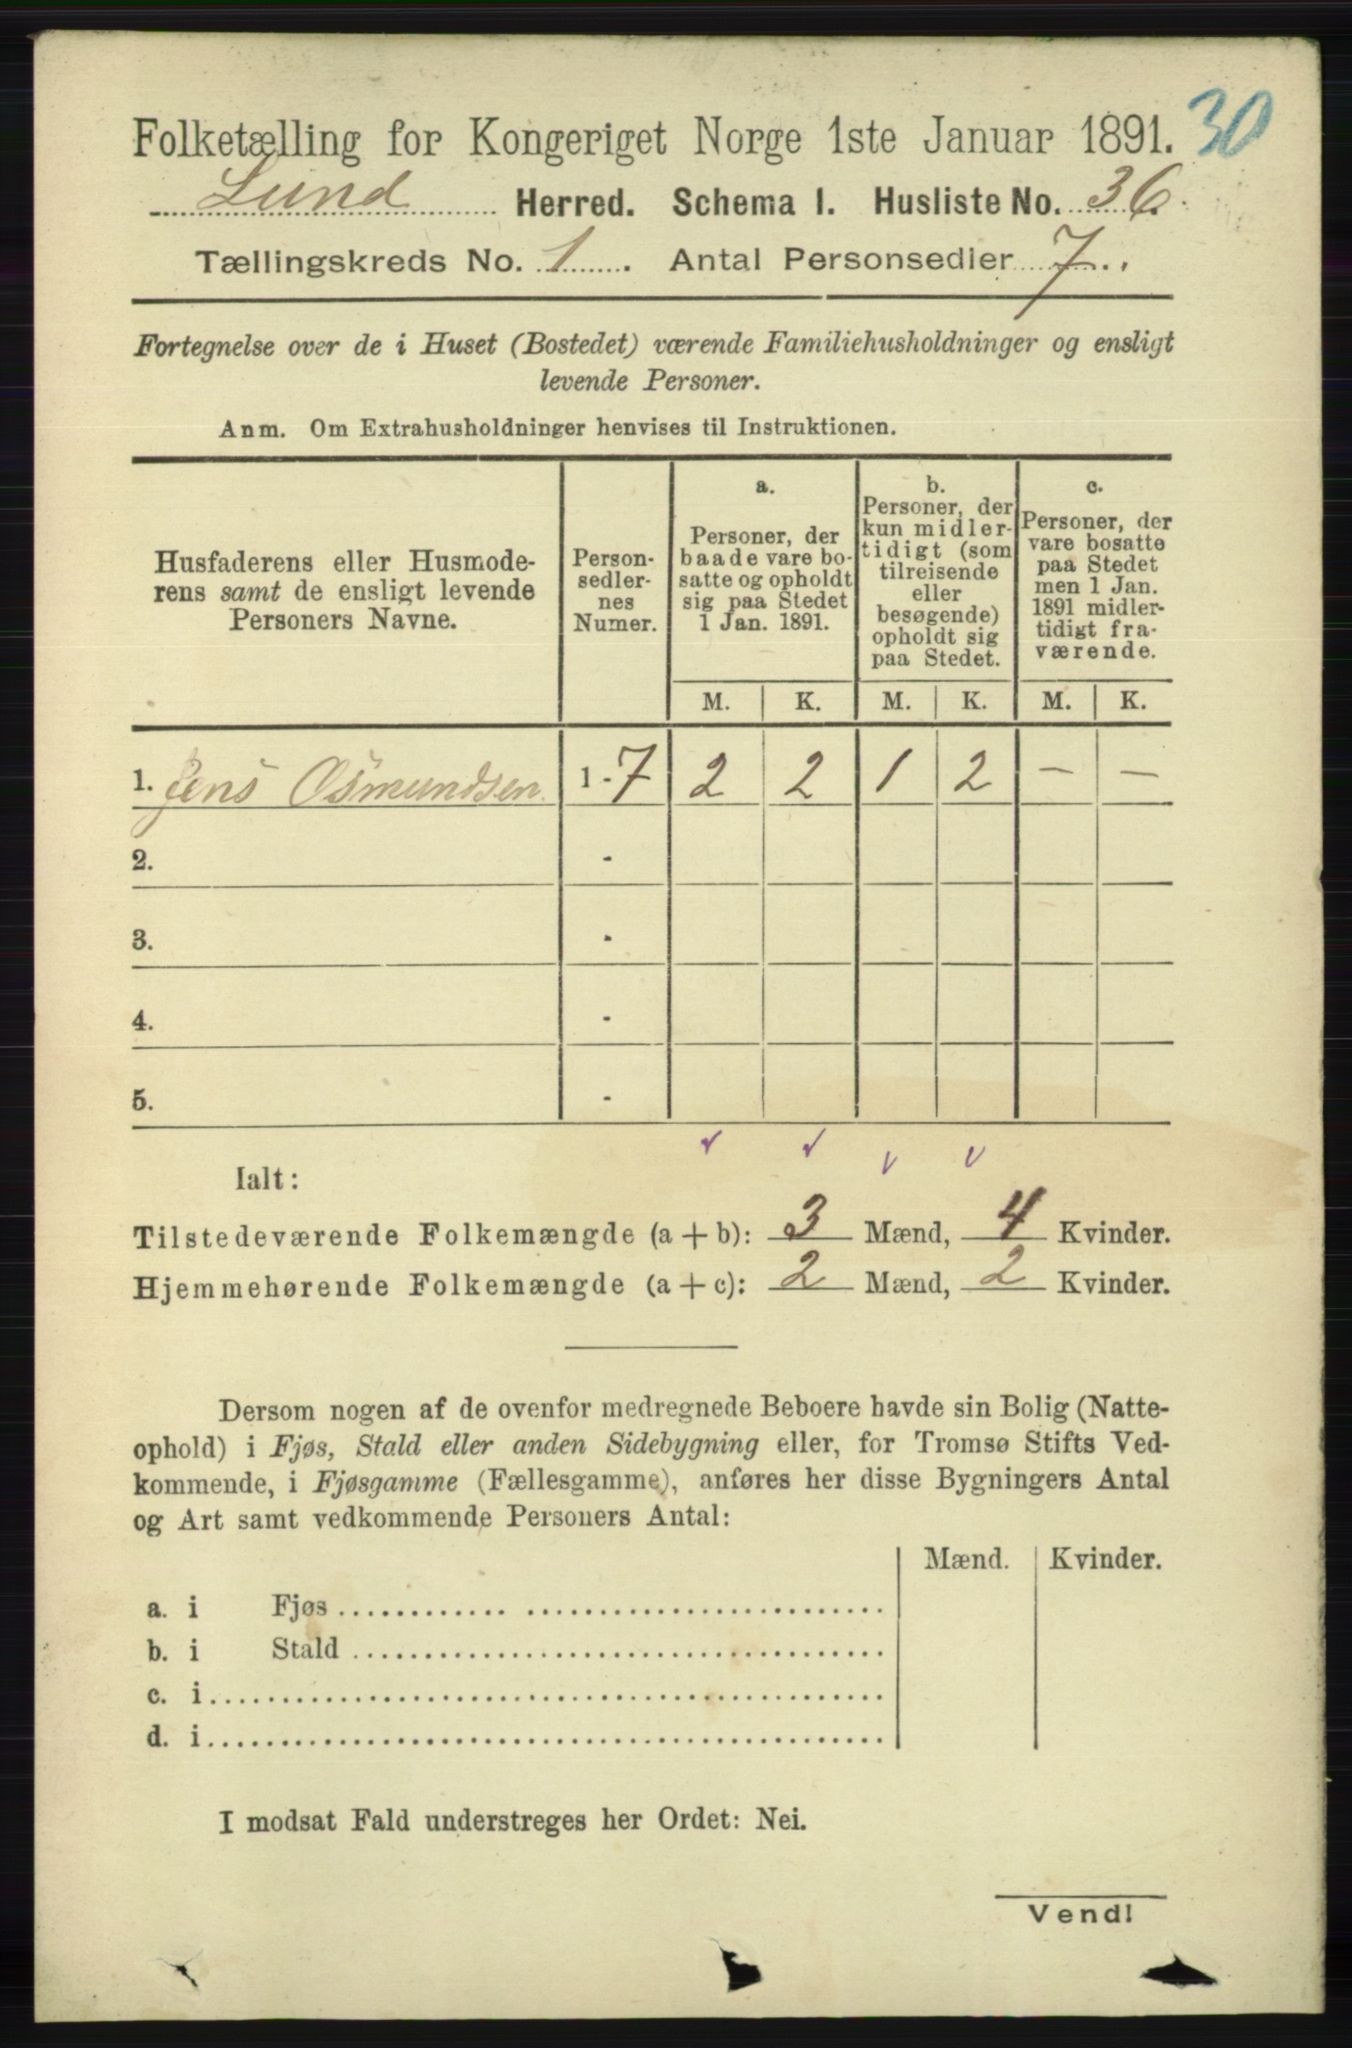 30
Folketælling for Kongeriget Norge 1ste Januar 1891.
Lund Herred. Schema I. Husliste No. 36.
Tællingskreds No. 1. Antal Personsedler 7.
Fortegnelse over de i Huset (Bostedet) værende Familiehusholdninger og ensligt
levende Personer.
Anm. Om Extrahusholdninger henvises til Instruktionen.
Husfaderens eller Husmode-
rens samt de ensligt levende
Personers Navne.
Person-
sedler-
nes
Numer.
a.
Personer, der
baade vare bo-
satte og opholdt
sig paa Stedet
1 Jan. 1891.
b.
Personer, der
kun midler-
tidigt (som
tilreisende
eller
besøgende)
opholdt sig
paa Stedet.
c.
Personer, der
vare bosatte
paa Stedet
men 1 Jan.
1891 midler-
tidigt fra-
værende.
M. K. M. K. M. K.
1. Jens Osmundsen 1 - 7 2 2 1 2 — —
2. -
3. -
4. -
5. -
Ialt:
Tilstedeværende Folkemængde (a + b): 3 Mænd, 4 Kvinder.
Hjemmehørende Folkemængde (a + c): 2 Mænd, 2 Kvinder.
Dersom nogen af de ovenfor medregnede Beboere havde sin Bolig (Natte-
ophold) i Fjøs, Stald eller anden Sidebygning eller, for Tromsø Stifts Ved-
kommende, i Fjøsgamme (Fællesgamme), anføres her disse Bygningers Antal
og Art samt vedkommende Personers Antal:
Mænd. Kvinder.
a. i Fjøs
b. i Stald
c. i
d. i
I modsat Fald understreges her Ordet: Nei.
Vend!